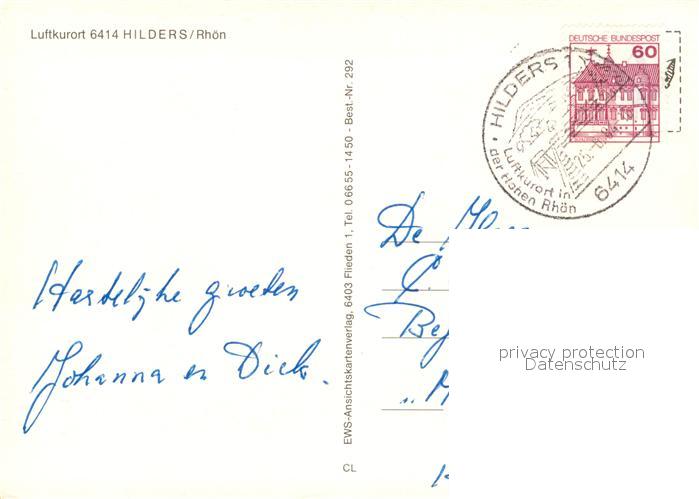 Luftkurort 6414 HILDERS/Rhön
Hartelijke groeten
Johanna en Dick.
EWS-Ansichtskartenverlag, 6403 Flieden 1, Tel. 0 66 55 - 14 50 - Best.-Nr. 292
CL
DEUTSCHE BUNDESPOST
60
HILDERS 1
Luftkurort in
der Hohen Rhön
6414
De
privacy protection
Datenschutz